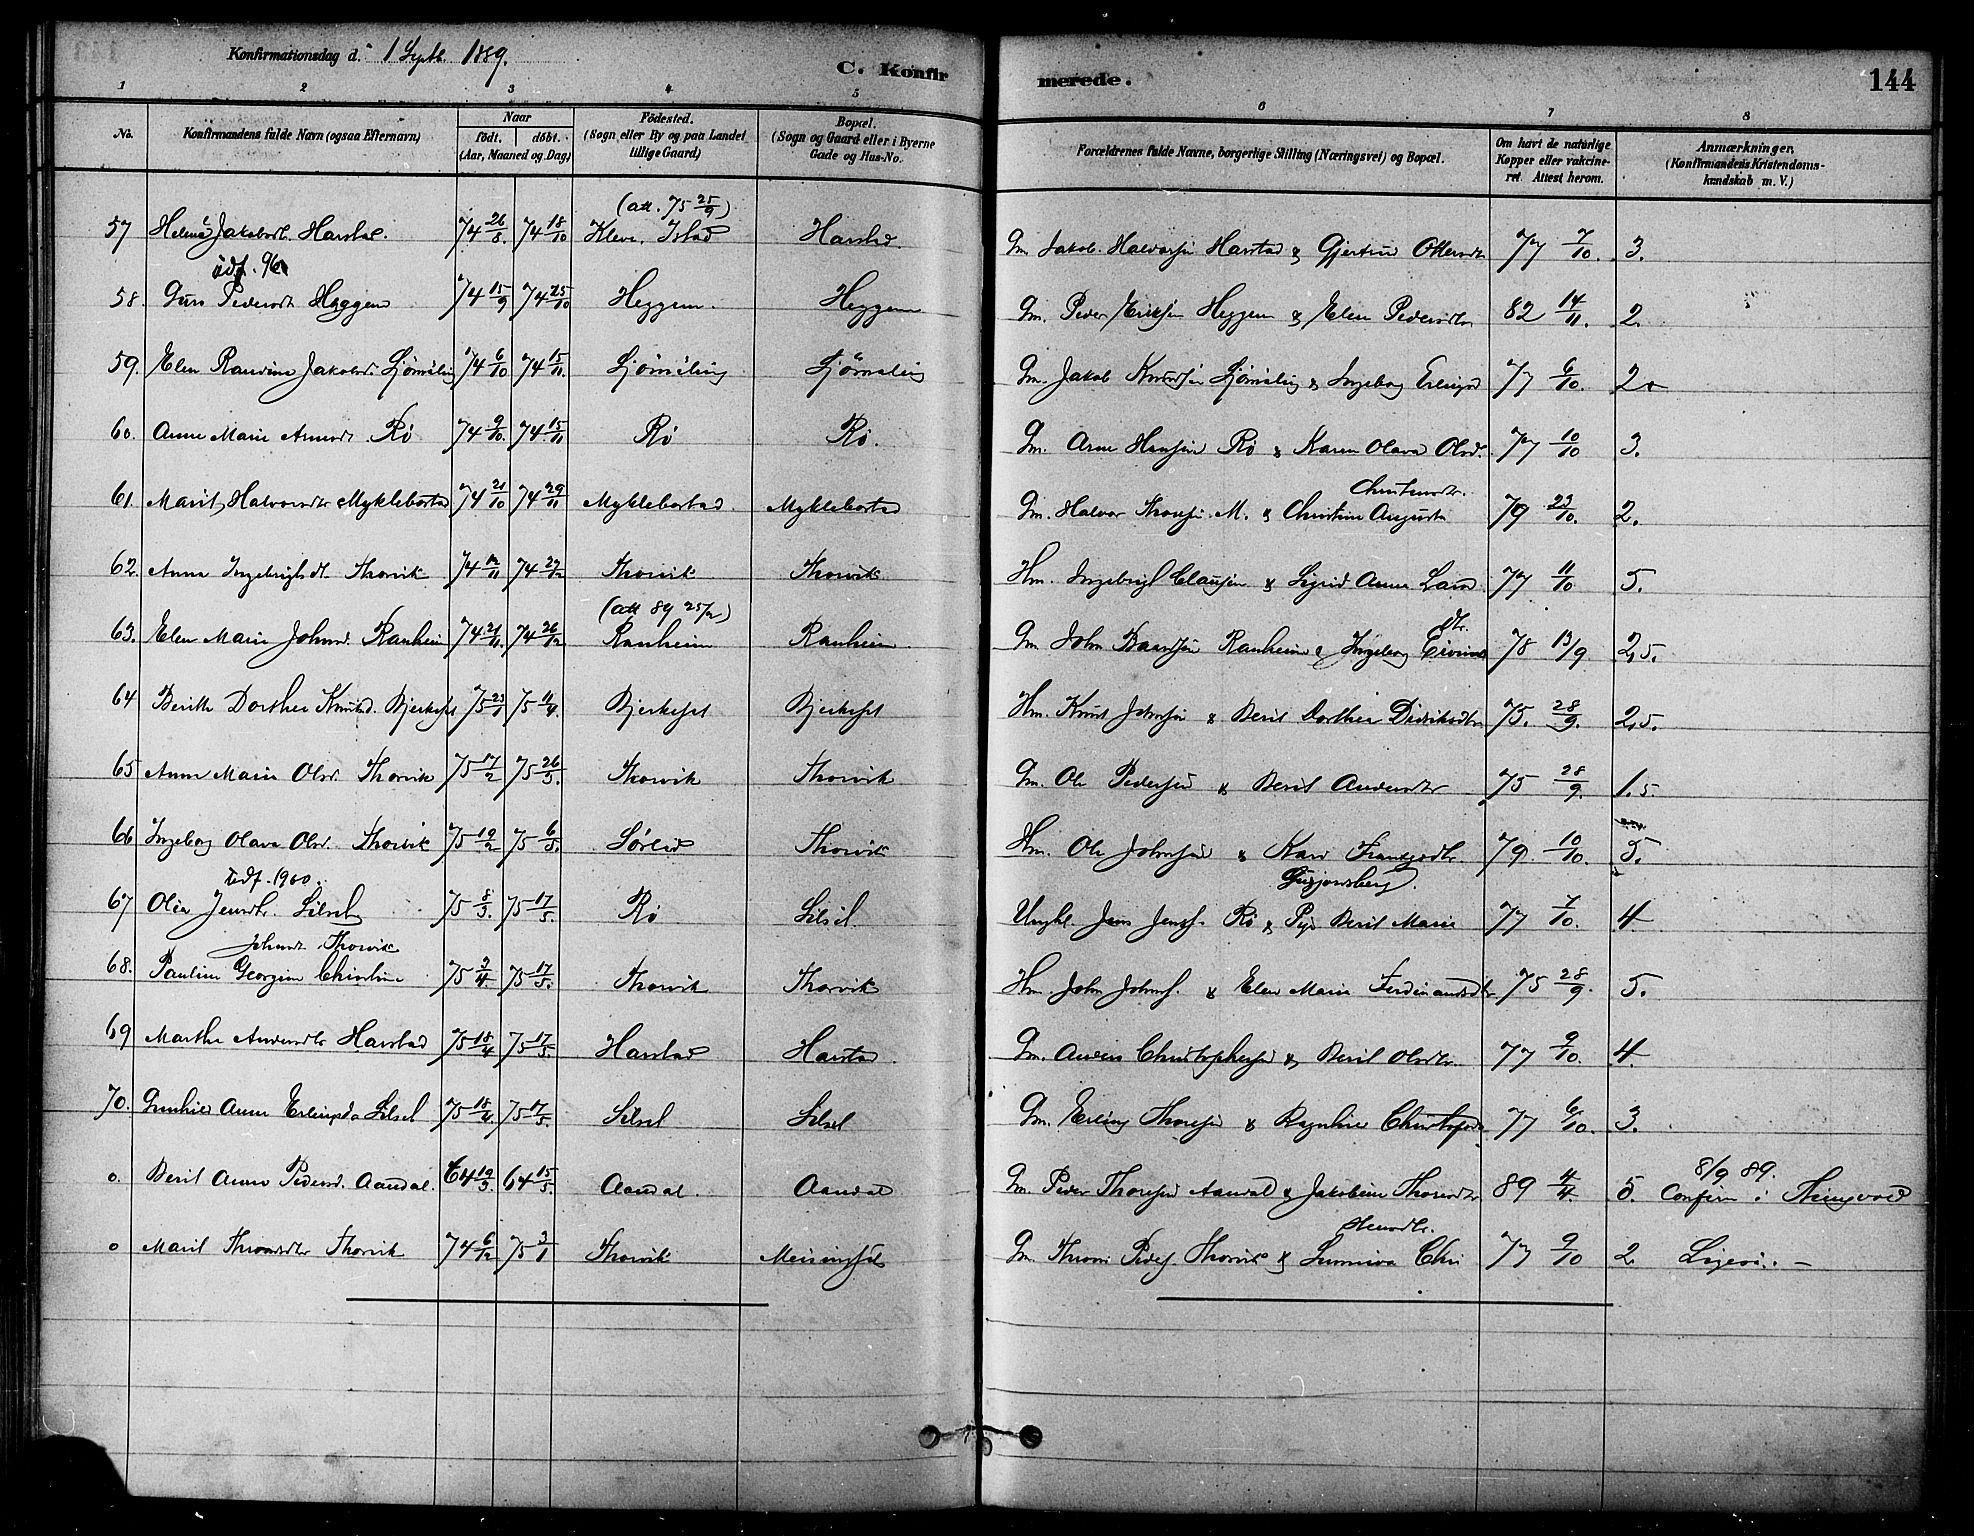 Konfirmationsdag d. 1 Septb. 1889.
C. Konfirmerede.
144
1 2 3 4 5 6 7 8
No. Konfirmandens fulde Navn (ogsaa Efternavn) Naar födt. döbt. (Aar, Maaned og Dag) Födested. (Sogn eller By og paa Landet tillige Gaard) Bopæl. (Sogn og Gaard eller i Byerne Gade og Hus-No. Forældrenes fulde Navne, borgerlige Stilling (Næringsvei) og Bopæl. Om havt de naturlige Kopper eller vakcineret Attest herom. Anmærkninger. (Konfirmandens Kristendomskundskab m. V.)
(att. 75 25/9)
57 Helena Jakobsdt. Harstad. 74 26/8 74 18/10 Kleve, Istad Harstad. Gm. Jakob Halvorsen Harstad & Gjertrud Ottersdtr 77 7/10. 3.
udf. 96
58. Guri Pedersdt Heggem 74 15/9 74 25/10 Heggem. Heggem Gm. Peder Eriksen Heggem & Elen Pedersdtr 82 14/11. 2.
59. Elen Randine Jakobsd. Sjömeling 74 6/10 74 15/11. Sjömeling Sjömeling Gm. Jakob Knudsen Sjömeling & Ingeborg Erlingsd 77 6/10. 2.
60. Anne Marie Arnesdt. Rö 74 9/10. 74 15/11 Rö Rö. Gm. Arne Hansen Rö & Karen Olava Olsd. 77 10/10 3.
61. Marit Halvorsdtr Myklebostad 74 21/10 74 29/11 Myklebostad. Myklebostad Gm. Halvor Thoresen M. & Christine Augusta Christensdtr. 79 22/10. 2.
62. Anna Ingebrigtsdt. Thorvik 74 12/11 74 27/12 Thorvik Thorvik Hm. Ingebrigt Clausen & Sigrid Anne Larsd 77 11/10 5.
(att 89 25/2)
63. Elen Marie Johnsd. Ranheim 74 21/11. 74 26/12 Ranheim Ranheim. Gm John Baardsen Ranheim & Ingeborg Eivindsdtr. 78 13/9 2,5.
64 Berith Dorthea Knutsd. Bjerkeset 75 23/1 75 11/4. Bjerkeset Bjerkeset Hm. Knut Johnsen & Berit Dorthea Didriksdtr 75. 28/9. 2,5.
65 Anne Marie Olsd. Thorvik 75 17/2 75 26/3. Thorvik Thorvik Gm. Ole Pedersen & Berit Andersdtr 75 28/9. 1.5.
66 Ingeborg Olava Olsd. Thorvik 75 19/2 75 6/5. Sörlid Thorvik Hm. Ole Johnsen & Kari Frantzsdtr. 79 10/10. 5.
udf. 1900.
67 Olia Jensdtr. Silset 75 8/3. 75 17/5. Rö Silsel. Ungkl. Jens Jens. Rö & Pige Berit Marie 77 7/10. 4
68. Pauline Georgine Christine Johnsdt. Thorvik 75 2/4. 75 17/5. Thorvik Thorvik Hm. John Johns. & Elen Marie Ferdinandsdtr 75 28/9. 5.
69 Marthe Andersdtr Harstad 75 18/4 75 17/5. Harstad Harstad. Gm. Anders Christophersen & Berit Olsdtr. 77 9/10. 4.
70. Gunhild Anne Erlingsdtr Silsel 75 18/4. 75 17/5. Silsel Silsel Gm. Erling Thoresen & Ragnhild Christofersd 77 6/10. 3.
o. Berit Anne Pedersd. Aandal. 64 19/3. 64 15/5. Aandal. Aandal Gm. Peder Thoresen Aandal & Jakobine Thoresdtr 89 4/4. 5. 8/9 89. Confirm. i Thingvold
o Marit Throndsdtr Thorvik 74 6/12 75 3/1 Thorvik Meisingset Gm. Thrond Peders. Thorvik & Sunniva Chri 77 9/10 2 Ligesaa. –